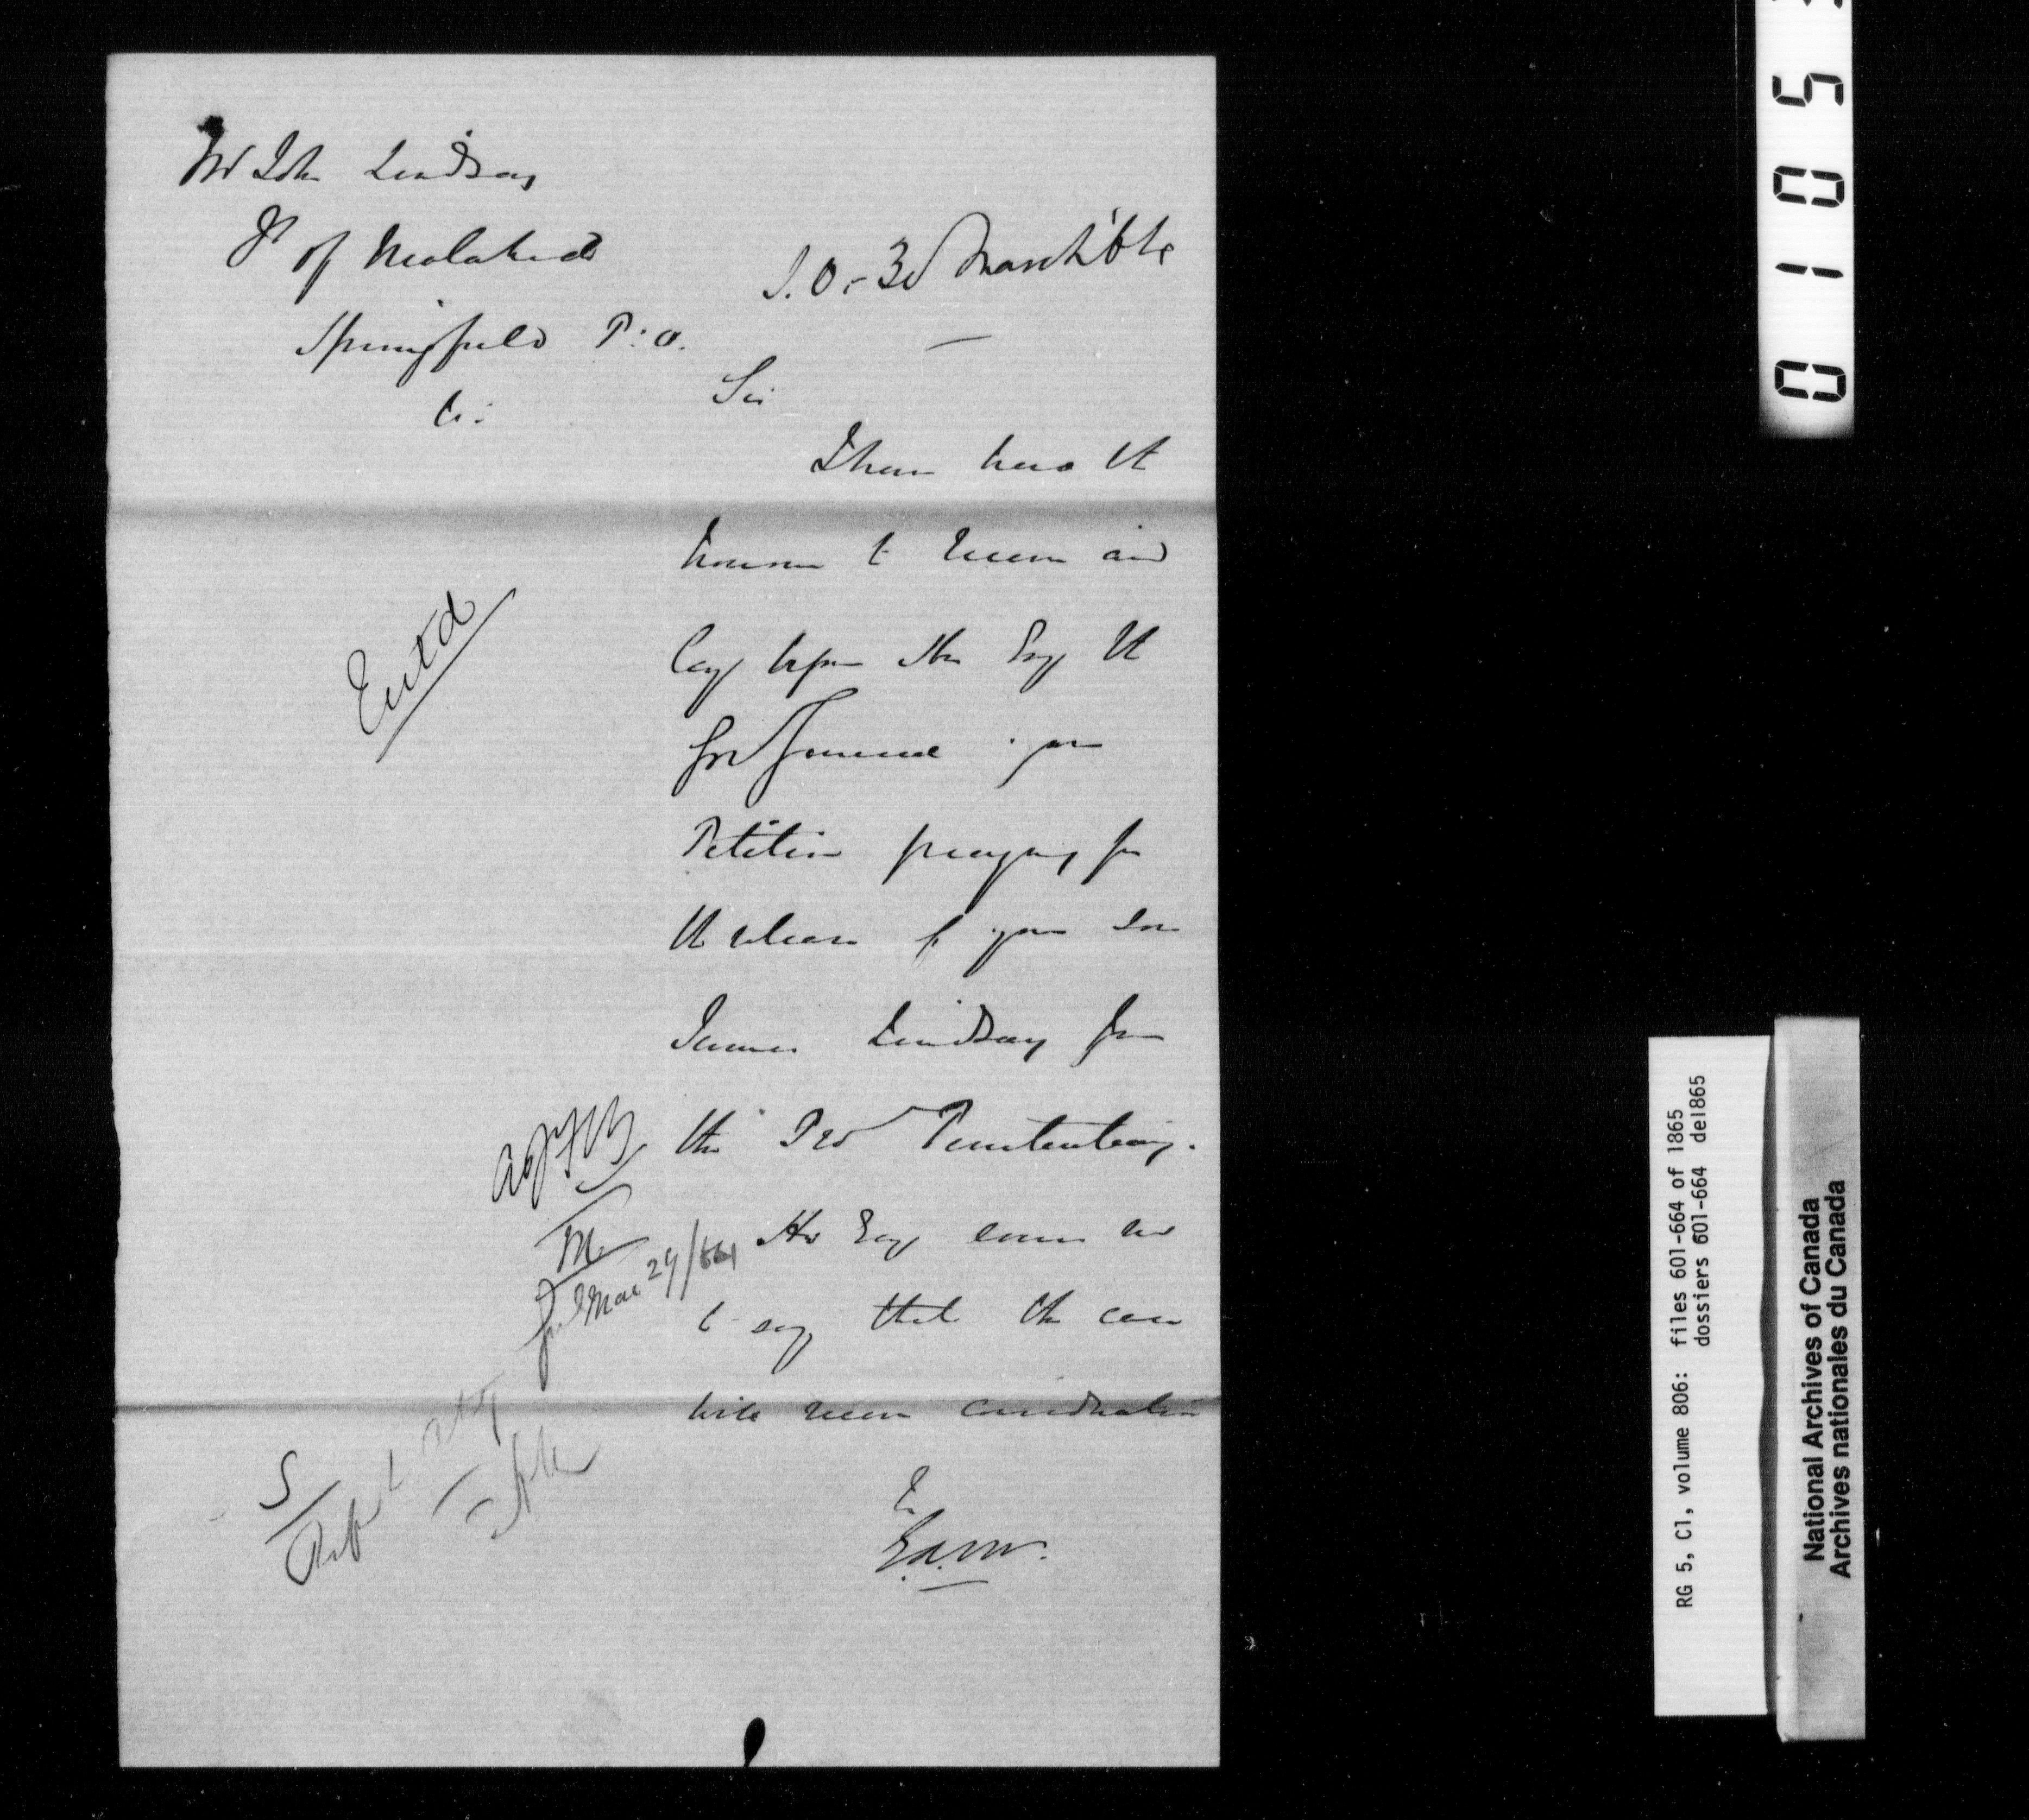 Mr John Lindsay
Tp of Malahide
Springfield P: O.
C:
S. O. - 3d March '64
Sir
I have had the
honour to receive and
lay before His Exy the
Gov General your
Petition praying for
the release of your son
James Lindsay from
the Prov Penitentiary.
His Exy desires me
to say that the case
will receive consideration
E. A. M.
Entd
Mar 29/64
National Archives of Canada
Archives nationales du Canada
RG 5, C1, volume 806: files 601-664 of 1865
dossiers 601-664 de1865
0 1 0 5